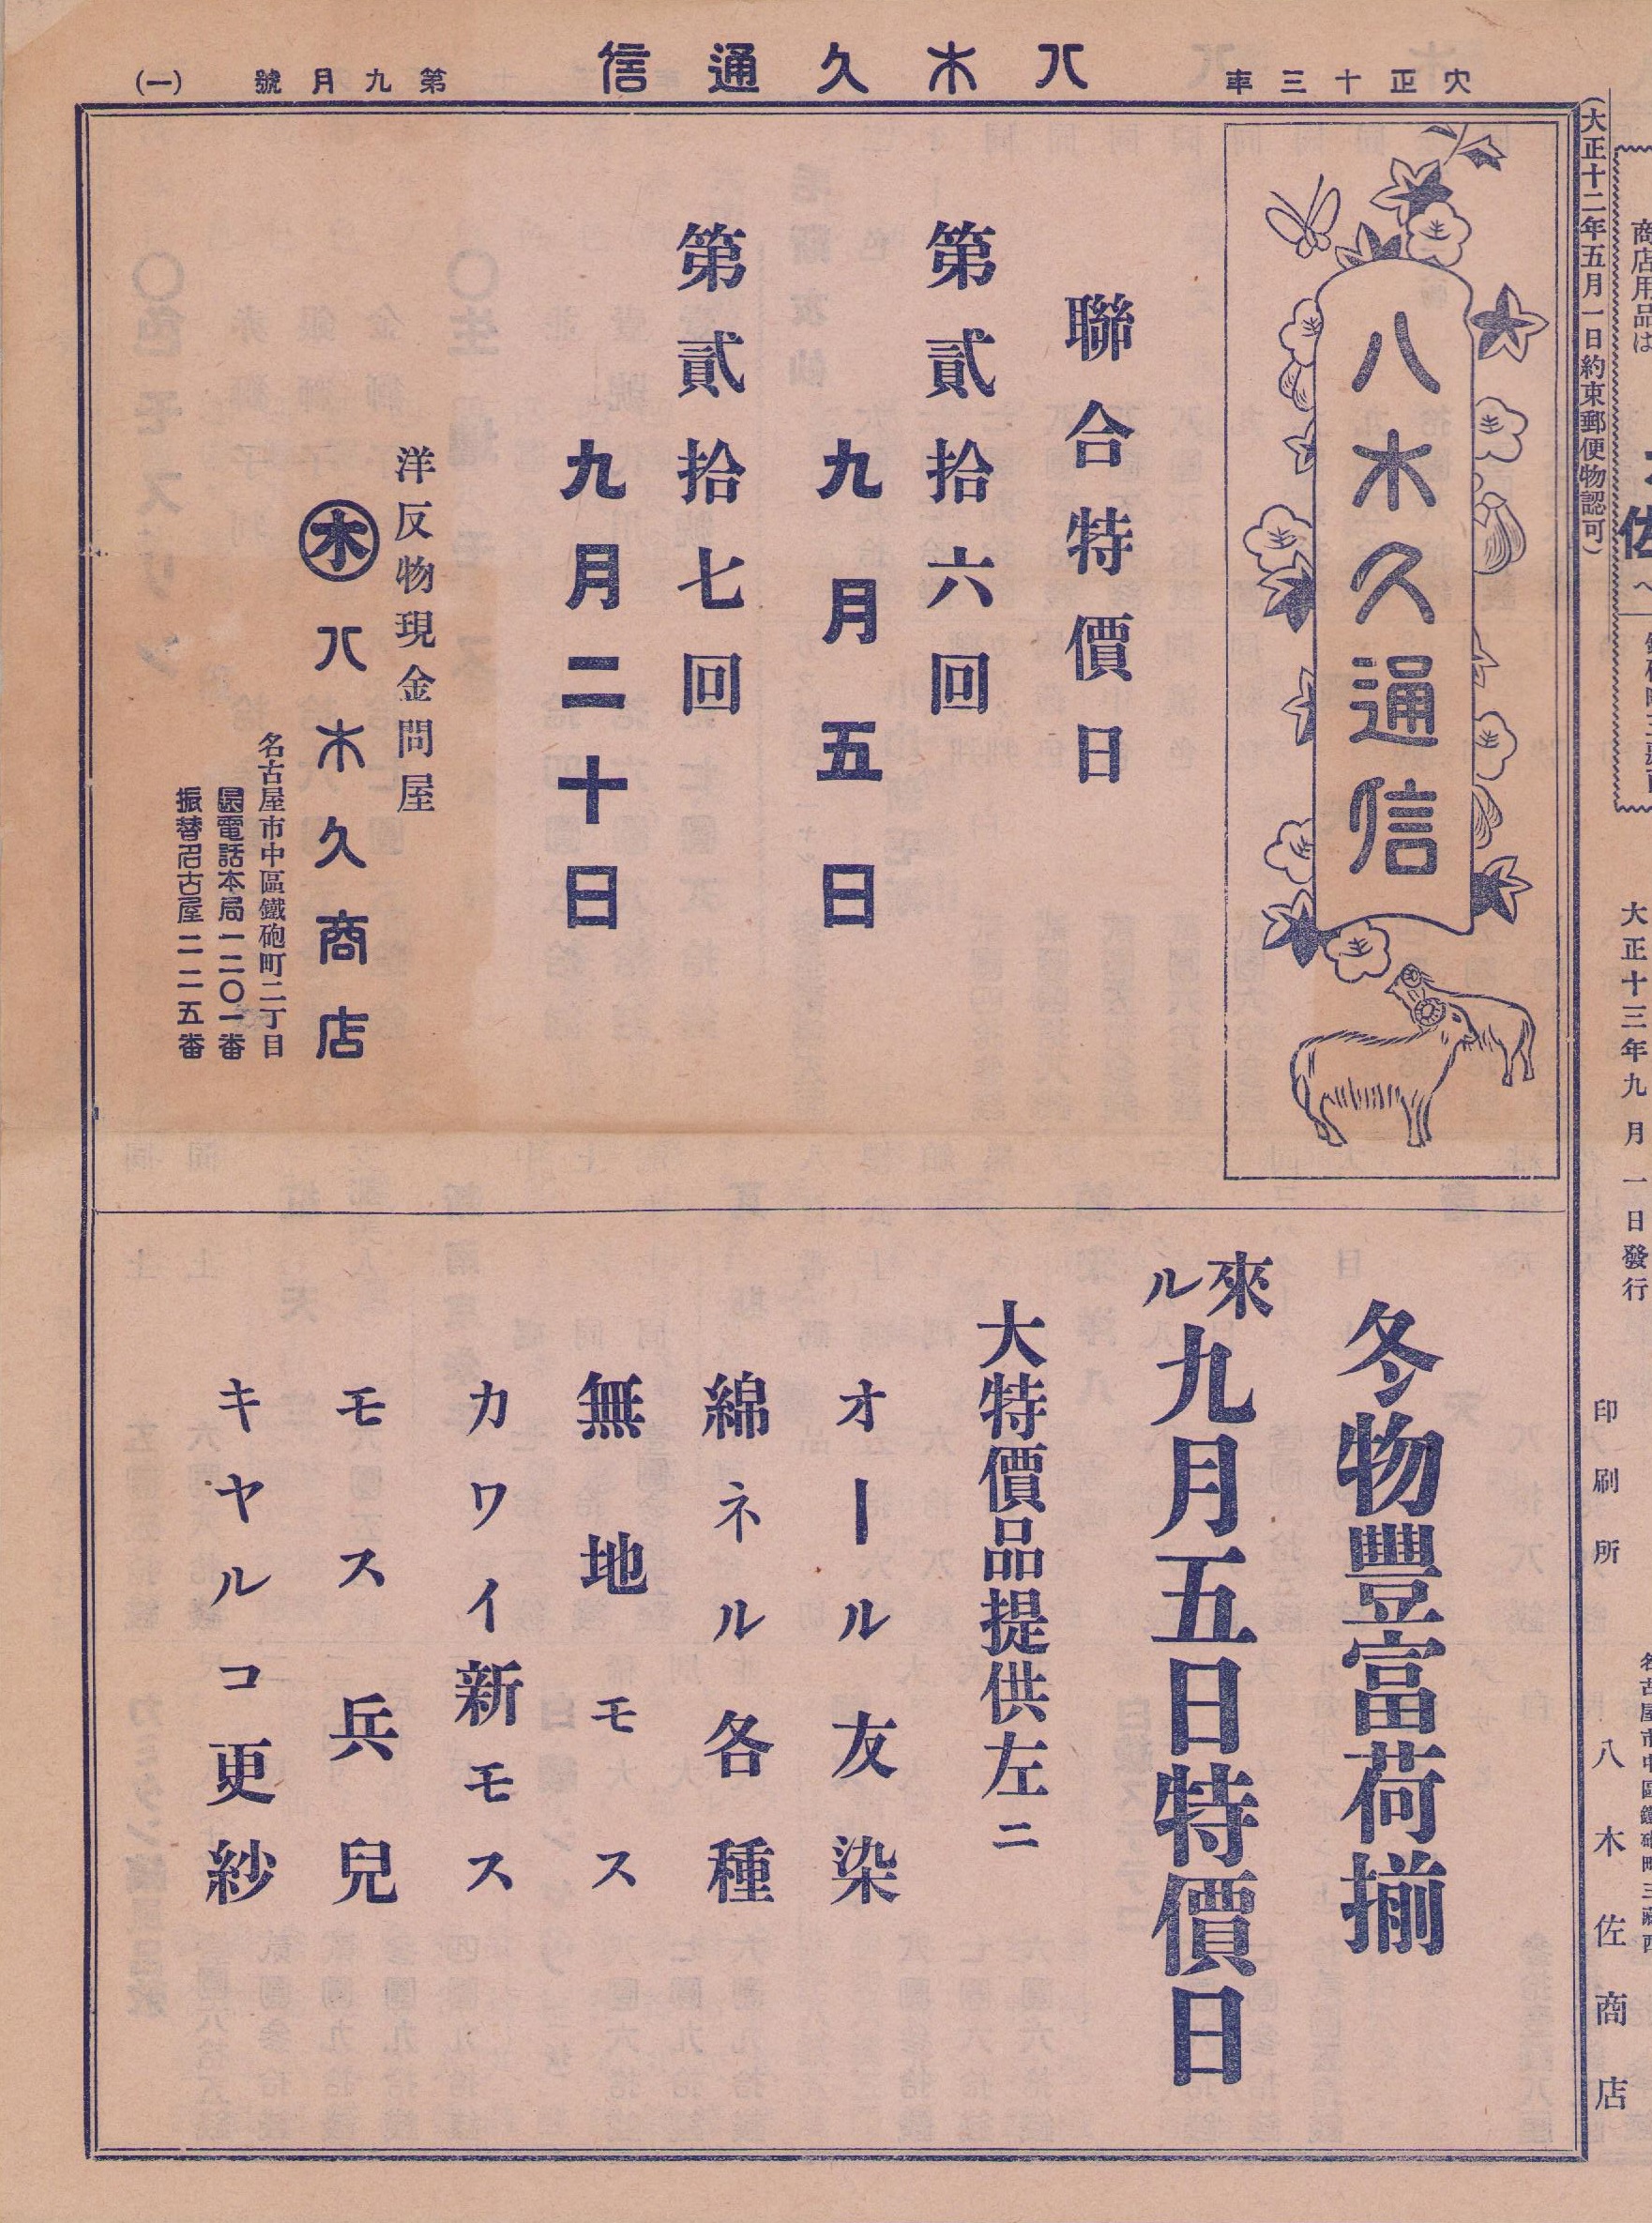 大正十三年
八木久通信
第九月號
(一)
(大正十二年五月一日約束郵便物認可)
八木久通信
聯合特價日
第貳拾六回
九月五日
第貳拾七回
九月二十日
洋反物現金問屋
木 八木久商店
名古屋市中區鐵砲町二丁目
長電話本局一二〇一番
振替名古屋二二五番
冬物豐富荷揃
來ル九月五日特價日
大特價品提供左ニ
オール友染
綿ネル各種
無地モス
カワイ新モス
モス兵兒
キヤルコ更紗
商店用品は
大正十三年九月一日發行
印刷所 八木佐商店